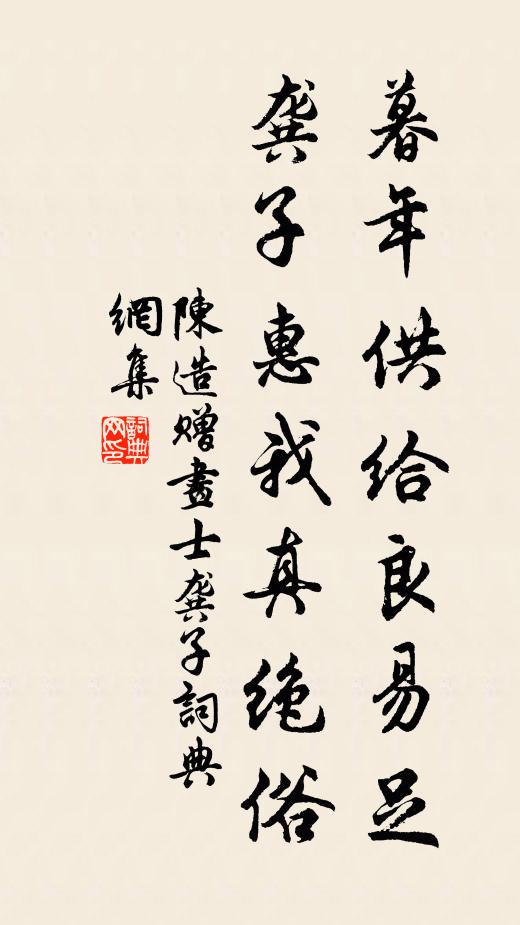 暮年供給良易足
龔子惠我真絶俗
陳造贈畫士龔子詞典
網集
詞典
网印